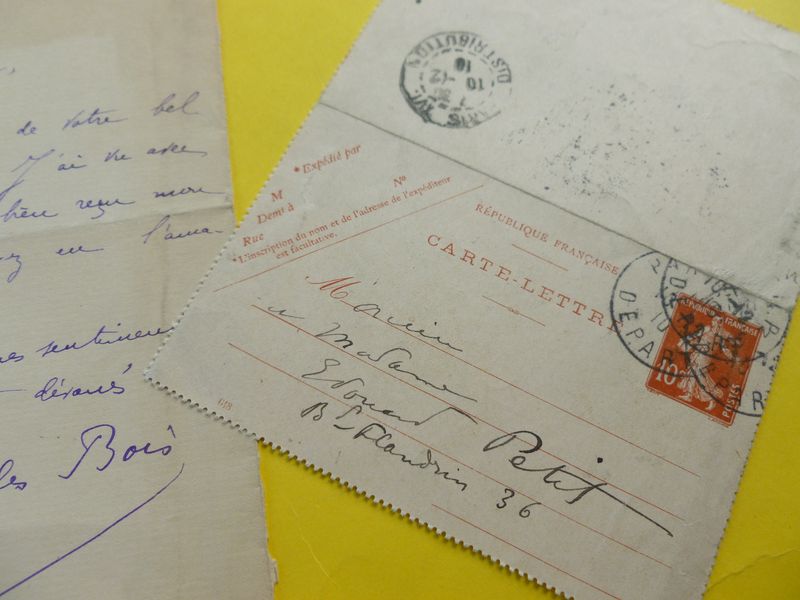 de votre bel
J'ai
bien reçu mon
en l'ama-
sentimens
dévoués
Bois
PARIS XVI
10 -12
10
DISTRIBUTION
* Expédié par
M N°
Dem.t à
Rue
* L'inscription du nom et de l'adresse de l'expéditeur
est facultative.
RÉPUBLIQUE FRANÇAISE
CARTE-LETTRE
Monsieur
et Madame
Edouard Petit
Bd Flandrin 36
618
DEPART
RÉPUBLIQUE FRANÇAISE
10
POSTES